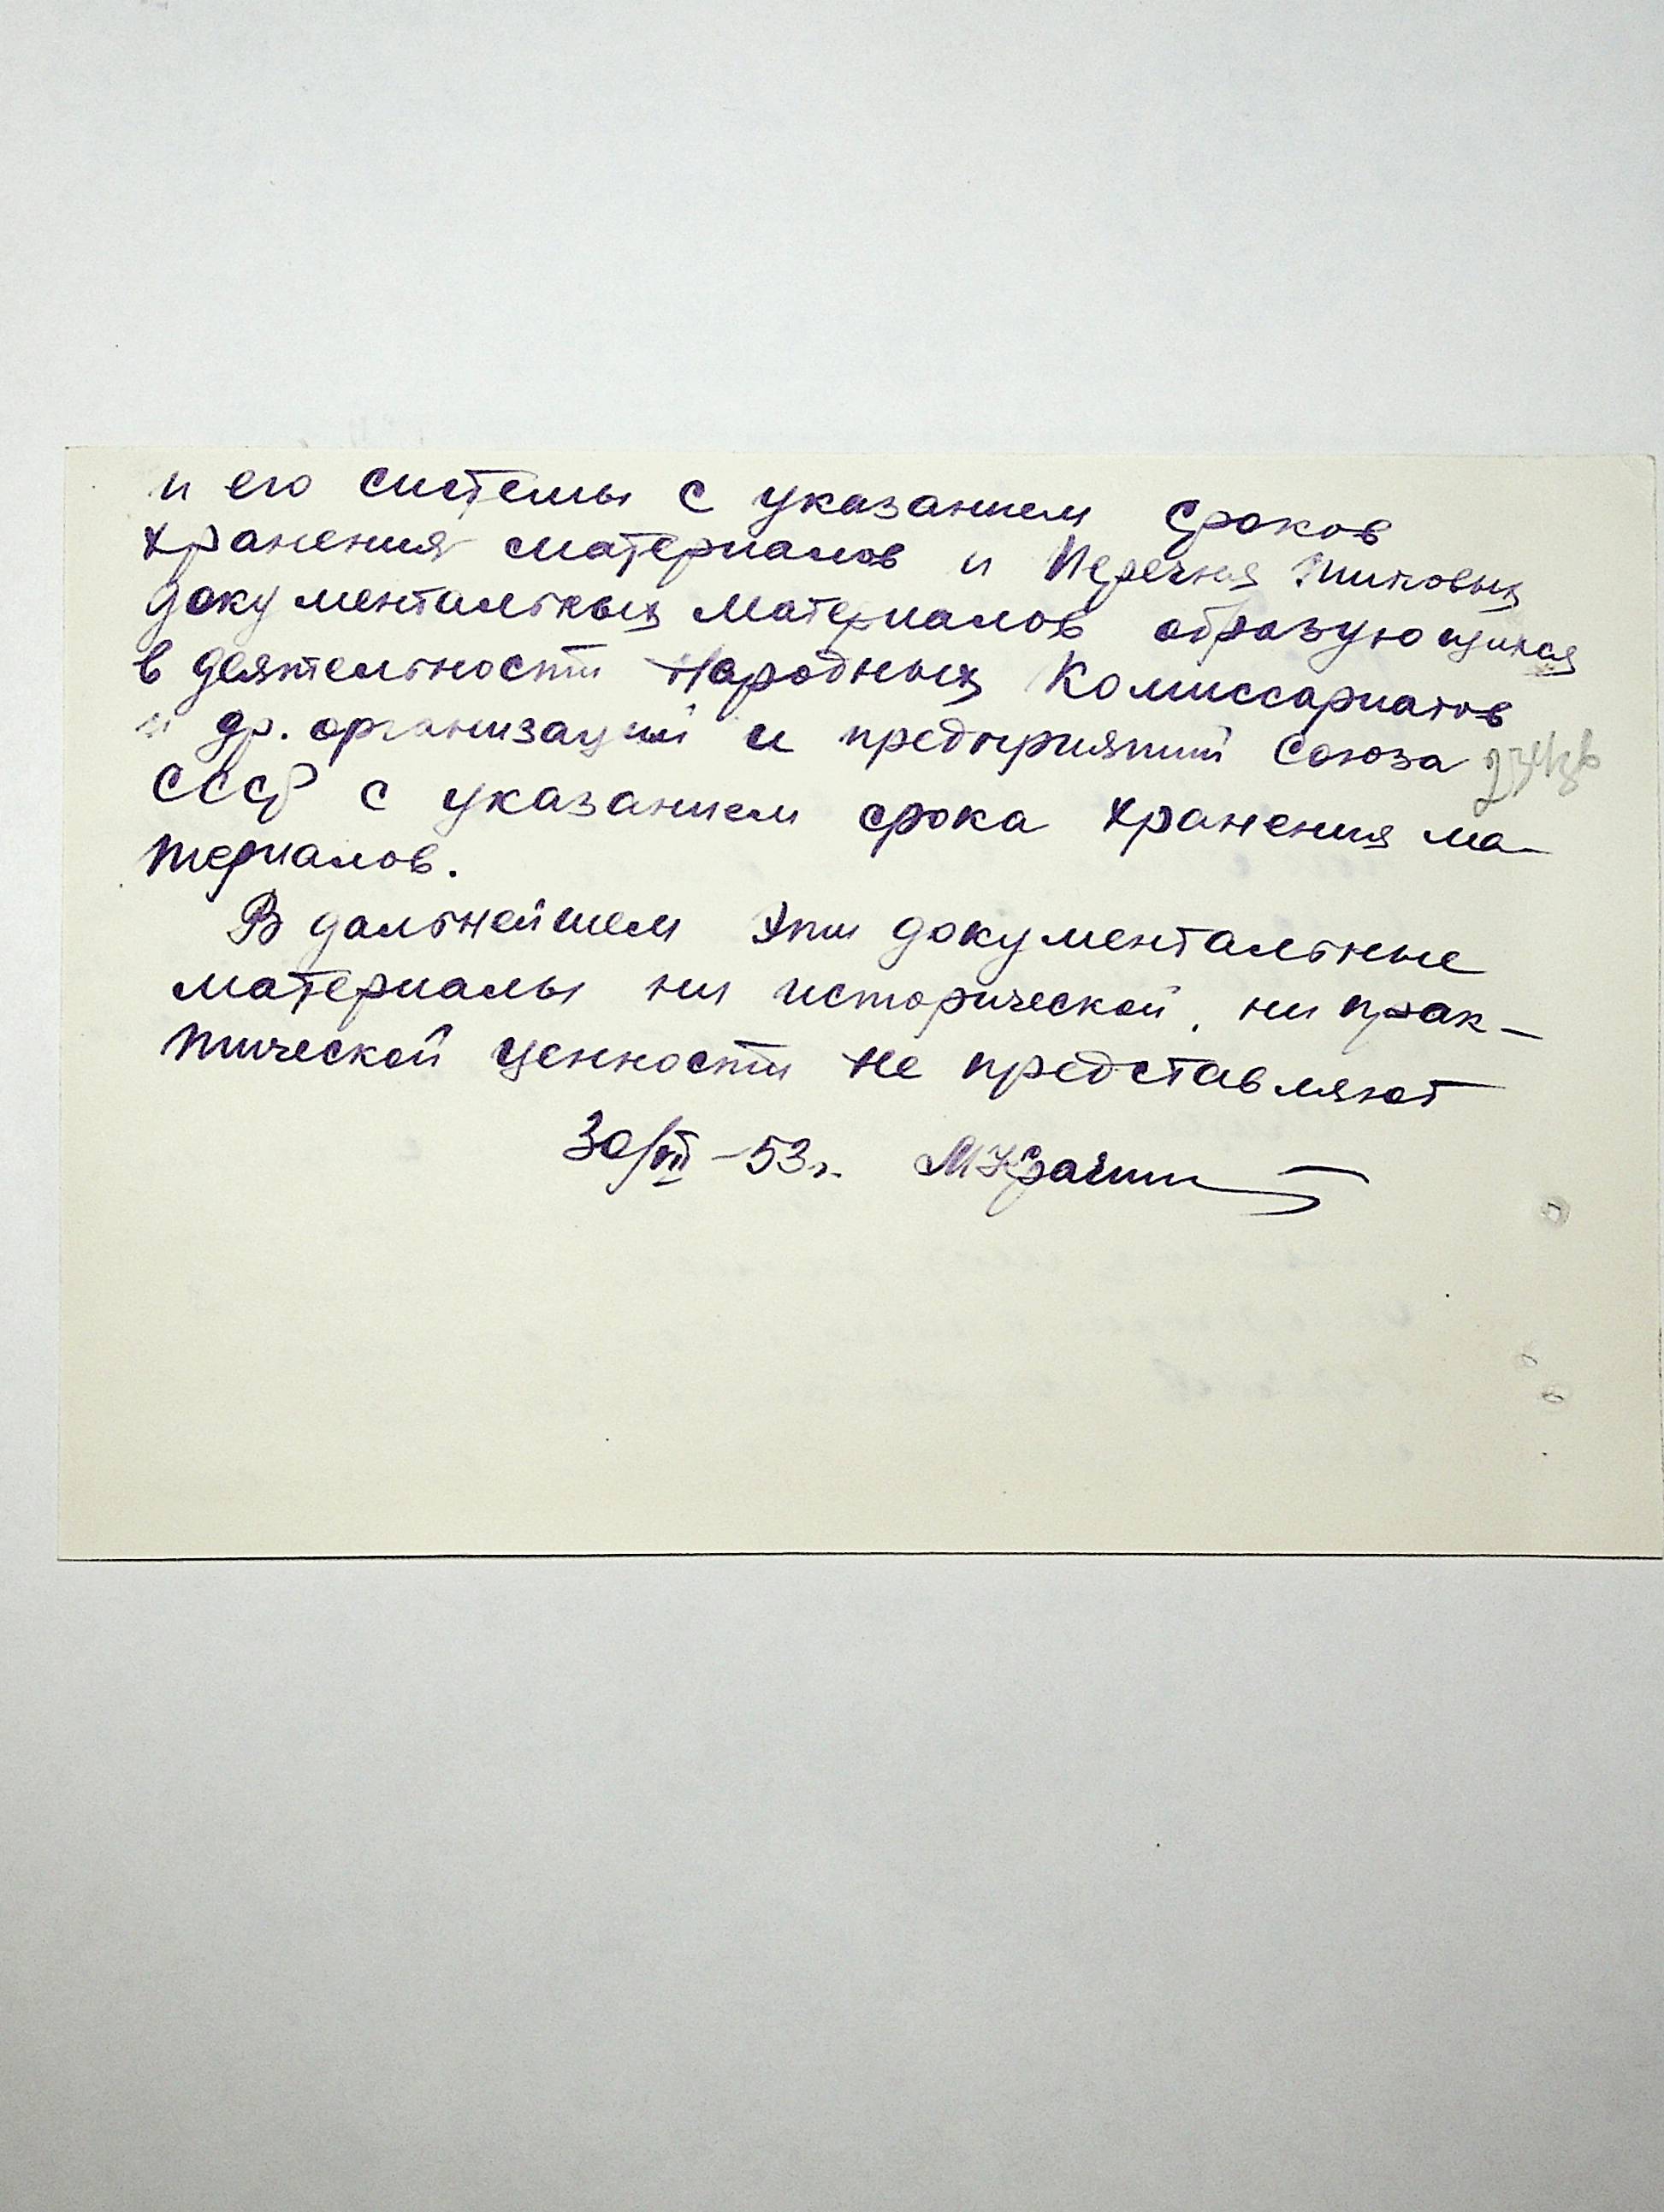 и его системы с указанием сроков
хранения материалов и Перечня типовых
документальных материалов образующихся
в деятельности Народных Комиссариатов
и др. организаций и предприятий Союза
СССР с указанием срока хранения ма-
териалов.
В дальнейшем эти документальные
материалы ни исторической, ни прак-
тической ценности не представляют
30/VII -53г.